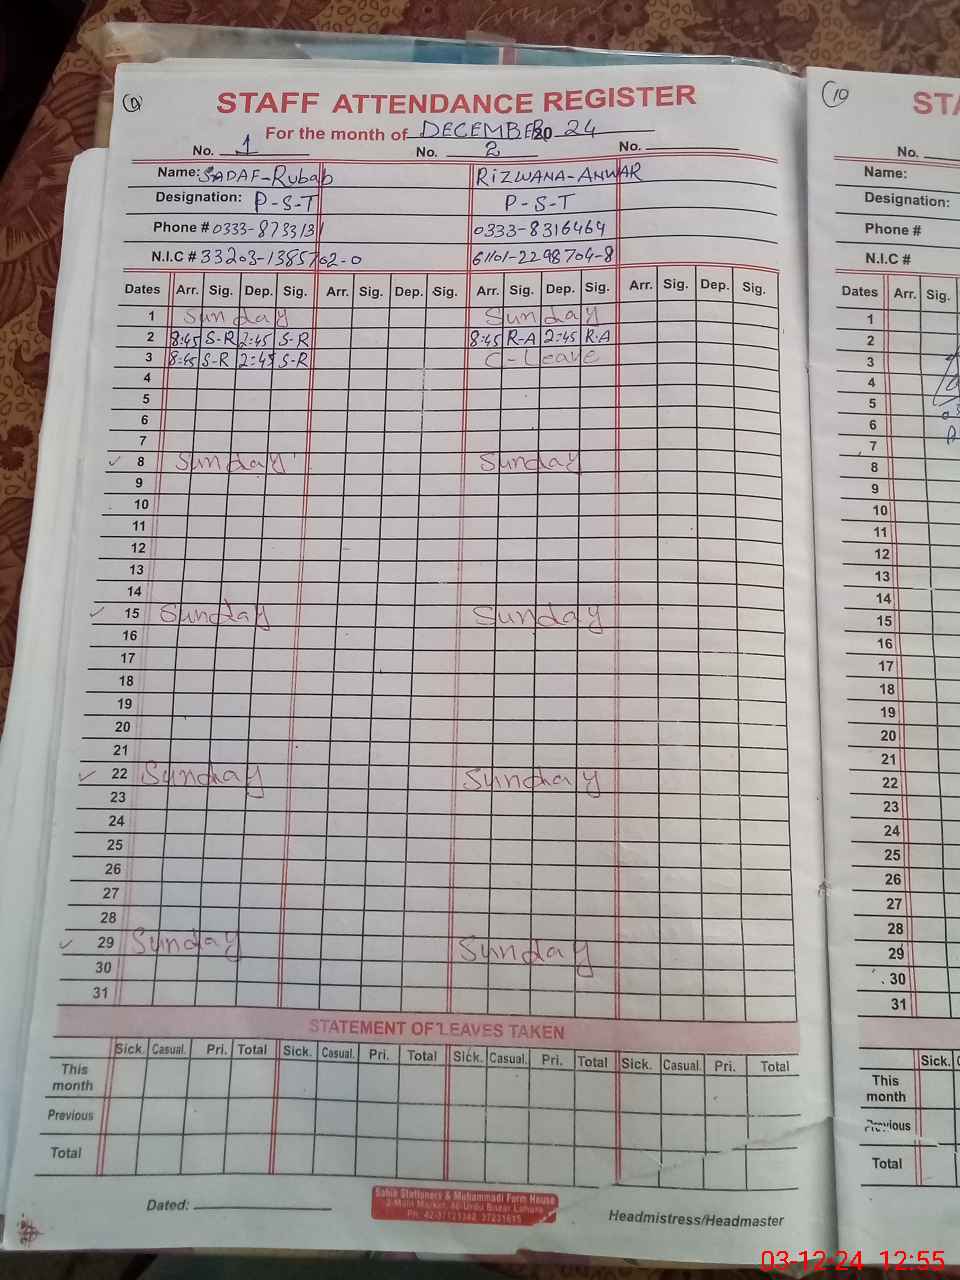 9
STAFF ATTENDANCE REGISTER
For the month of DECEMBER 20 24
No. 1 No. 2 No.
Name: SADAF-Rubab RIZWANA-ANWAR
Designation: P-S-T P-S-T
Phone # 0333-8733131 0333-8316464
N.I.C # 33203-1385702-0 61101-2298704-8
Dates Arr. Sig. Dep. Sig. Arr. Sig. Dep. Sig. Arr. Sig. Dep. Sig. Arr. Sig. Dep. Sig.
1 Sunday Sunday
2 8:45 S-R 2:45 S-R 8:45 R-A 2:45 R.A
3 8:45 S-R 2:45 S-R C-Leave
4
5
6
7
8 Sunday Sunday
9
10
11
12
13
14
15 Sunday Sunday
16
17
18
19
20
21
22 Sunday Sunday
23
24
25
26
27
28
29 Sunday Sunday
30
31
STATEMENT OF LEAVES TAKEN
Sick. Casual. Pri. Total Sick. Casual. Pri. Total Sick. Casual. Pri. Total Sick. Casual. Pri. Total
This
month
Previous
Total
Dated:
Sahib Stationers & Muhammadi Form House
2-Main Market, 40-Urdu Bazar Lahore
Headmistress/Headmaster
10
STA
No.
Name:
Designation:
Phone #
N.I.C #
Dates Arr. Sig.
1
2
3
4
5
6
7
8
9
10
11
12
13
14
15
16
17
18
19
20
21
22
23
24
25
26
27
28
29
30
31
Sick.
This
month
Previous
Total
03-12-24 12:55